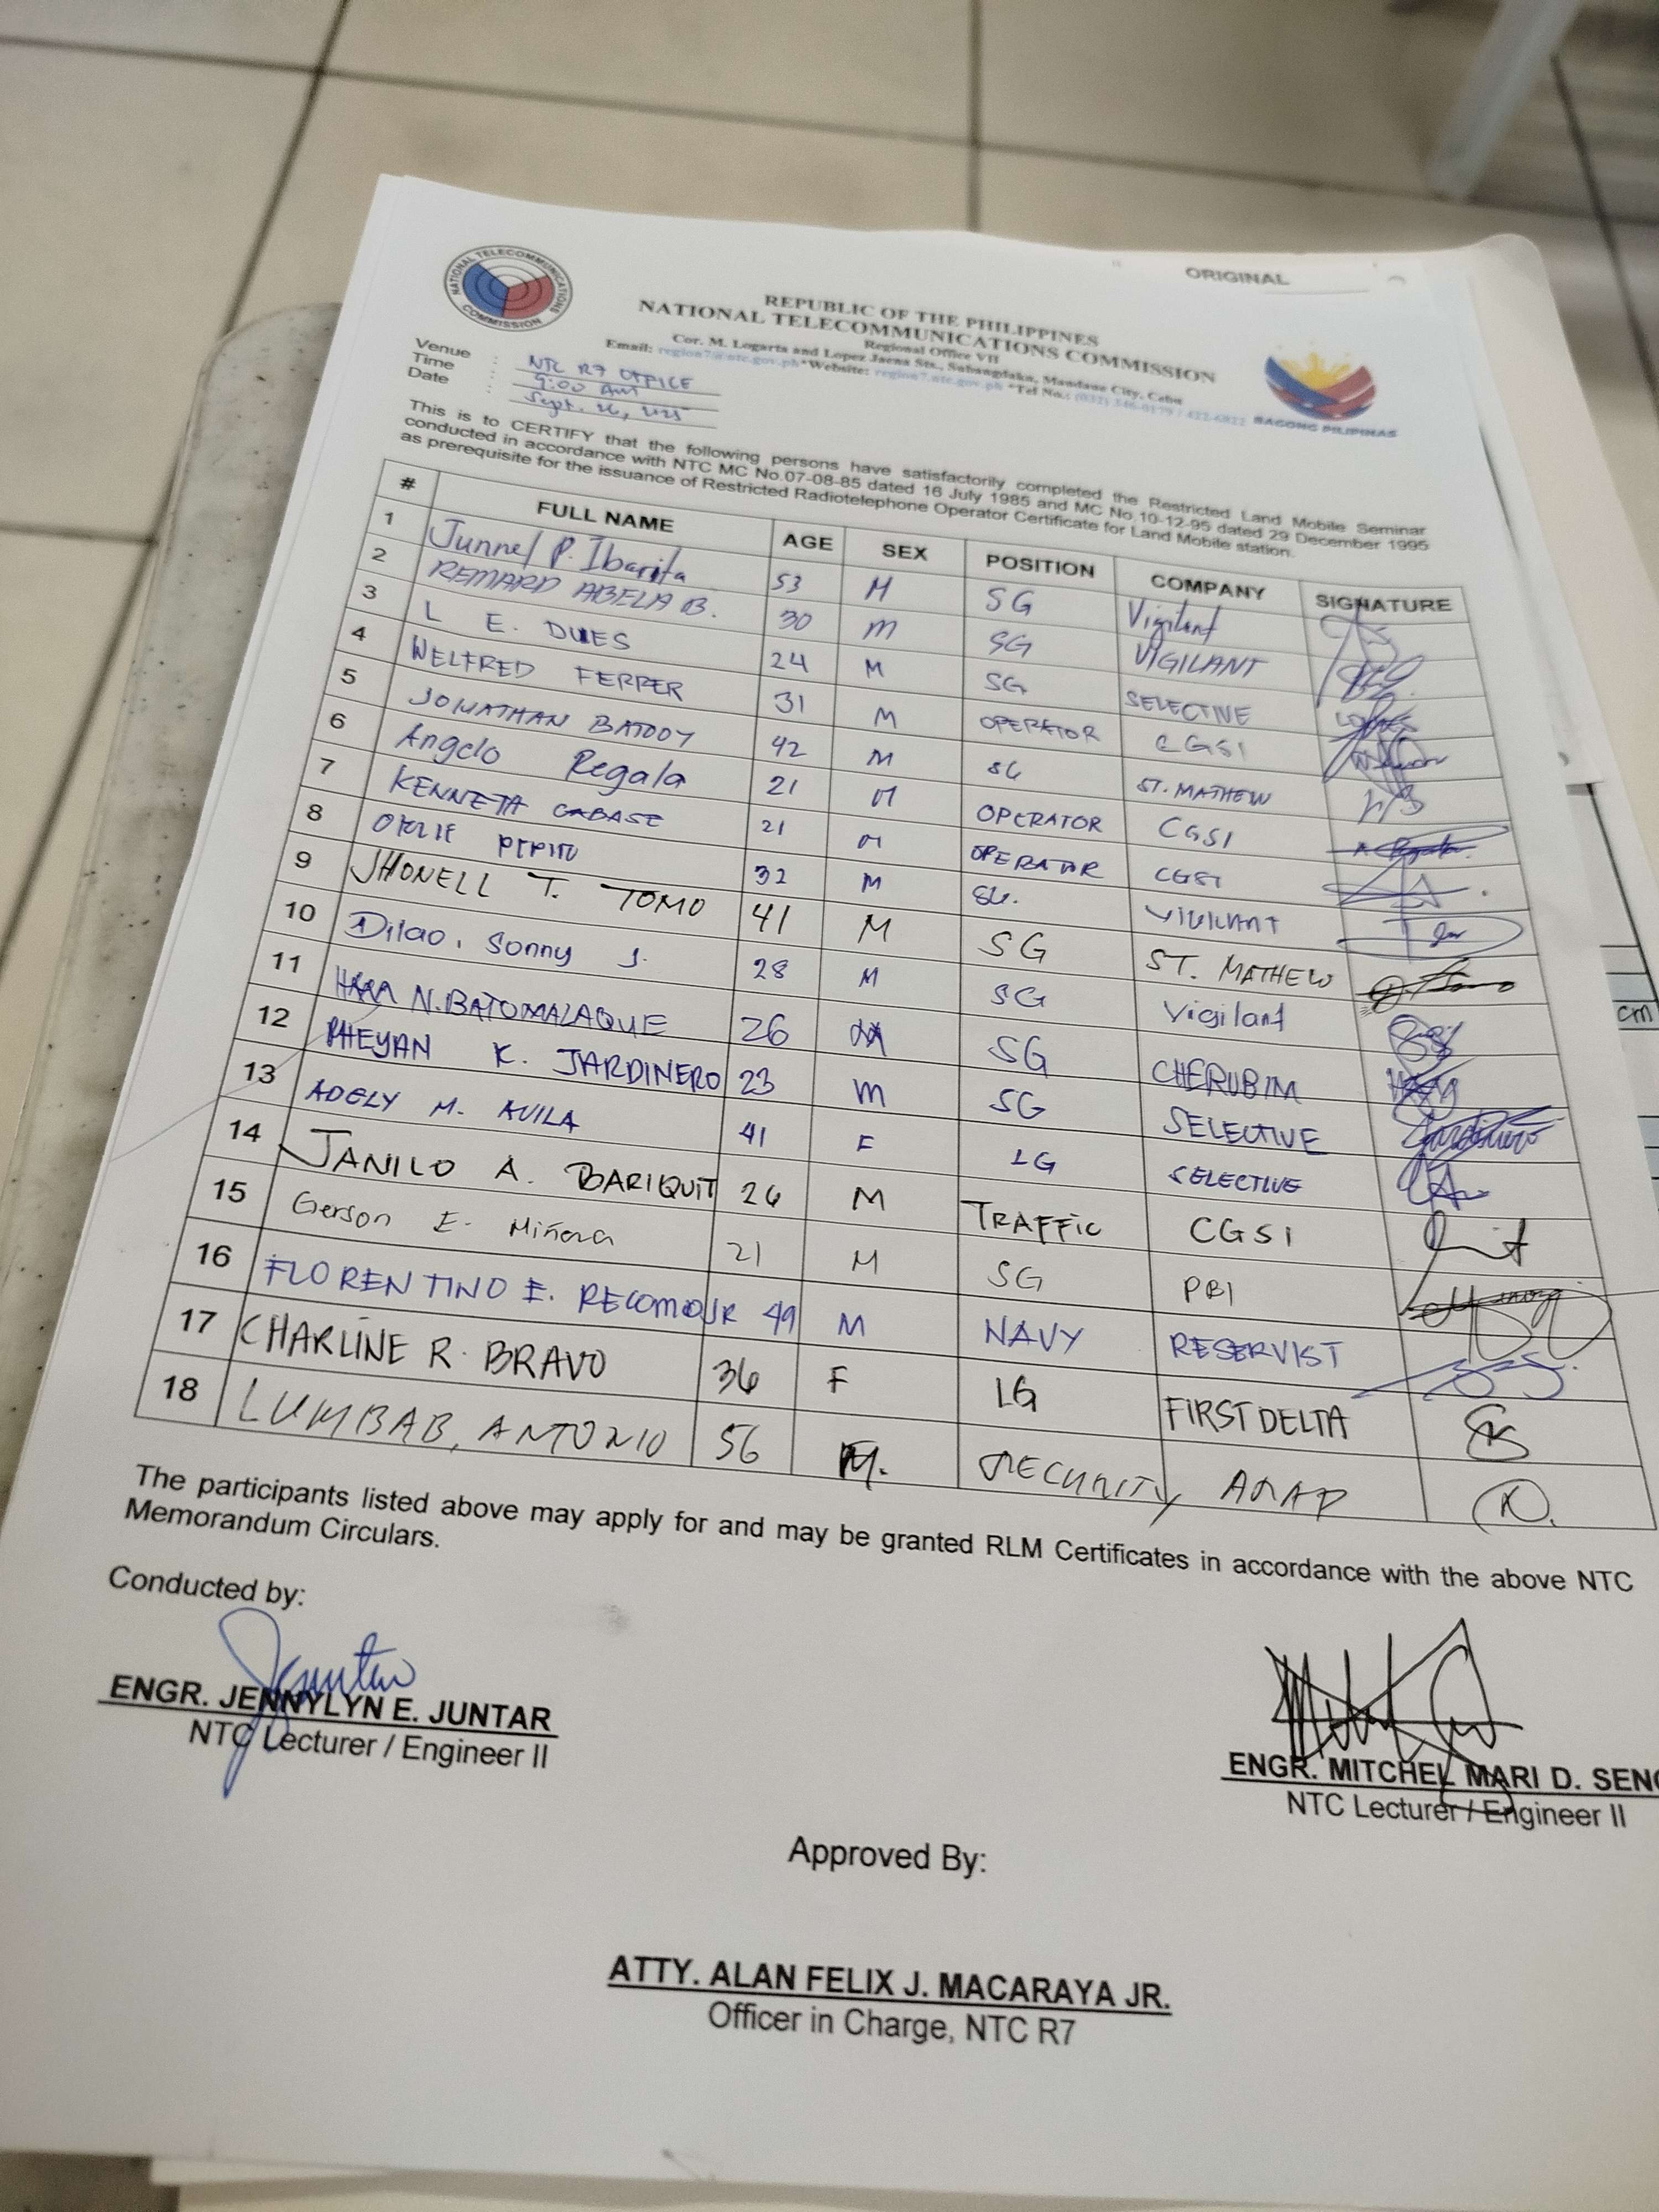 ORIGINAL
NATIONAL TELECOMMUNICATIONS COMMISSION
REPUBLIC OF THE PHILIPPINES
NATIONAL TELECOMMUNICATIONS COMMISSION
Regional Office VII
Cor. M. Logarta and Lopez Jaena Sts., Subangdaku, Mandaue City, Cebu
Email: region7@ntc.gov.ph*Website: region7.ntc.gov.ph *Tel No.: (032)
BAGONG PILIPINAS
Venue : NTC R7 OFFICE
Time : 9:00 AM
Date : Sept. 26, 2025
This is to CERTIFY that the following persons have satisfactorily completed the Restricted Land Mobile Seminar
conducted in accordance with NTC MC No.07-08-85 dated 16 July 1985 and MC No.10-12-95 dated 29 December 1995
as prerequisite for the issuance of Restricted Radiotelephone Operator Certificate for Land Mobile station.
# FULL NAME AGE SEX POSITION COMPANY SIGNATURE
1 Junnel P. Ibarita 53 M SG Vigilant
2 REMARD ABELA B. 30 M SG VIGILANT
3 L E. 24 M SG SELECTIVE
4 WELFRED FERRER 31 M OPERATOR CGSI
5 JONATHAN 42 M SG ST. MATHEW
6 Angelo Regala 21 M OPERATOR CGSI
7 KENNETH CABASE 21 M OPERATOR CGSI
8 PEPITO 32 M SG. VIGILANT
9 JHONELL T. TOMO 41 M SG ST. MATHEW
10 Dilao, Sonny J. 28 M SG Vigilant
11 N. BATOMALAQUE 26 M SG CHERUBIM
12 RHEYAN K. JARDINERO 23 M SG SELECTIVE
13 ADELY M. AVILA 41 F LG SELECTIVE
14 JANILO A. BARIQUIT 26 M TRAFFIC CGSI
15 Gerson E. Miñoza 21 M SG PBI
16 FLORENTINO E. RECOMO JR 49 M NAVY RESERVIST
17 CHARLINE R. BRAVO 36 F LG FIRST DELTA
18 LUMBAB, ANTONIO 56 M. SECURITY
cm
The participants listed above may apply for and may be granted RLM Certificates in accordance with the above NTC
Memorandum Circulars.
Conducted by:
ENGR. JENNYLYN E. JUNTAR
NTC Lecturer / Engineer II
ENGR. MITCHEL MARI D. SENO
NTC Lecturer / Engineer II
Approved By:
ATTY. ALAN FELIX J. MACARAYA JR.
Officer in Charge, NTC R7